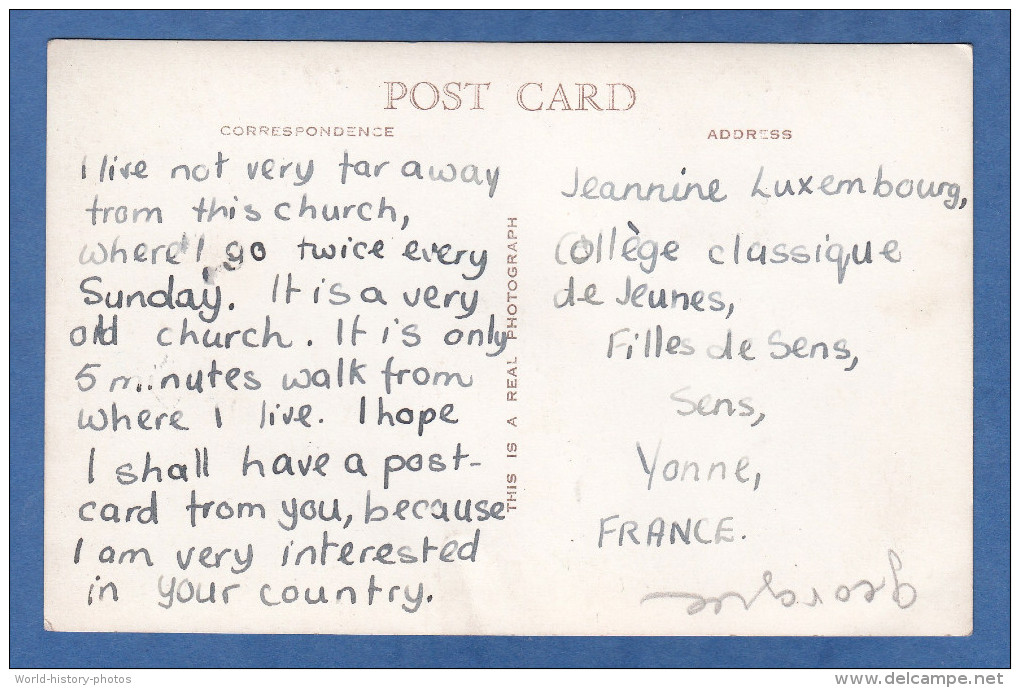 POST CARD
CORRESPONDENCE
I live not very far away
from this church,
where I go twice every
Sunday. It is a very
old church. It is only
5 minutes walk from
where I live. I hope
I shall have a post-
card from you, because
I am very interested
in your country.
THIS IS A REAL PHOTOGRAPH
ADDRESS
Jeannine Luxembourg,
Collège classique
de Jeunes,
Filles de Sens,
Sens,
Yonne,
FRANCE.
World-history-photos
delcampe.net